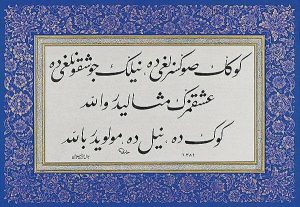 كوكك صوكسزلغى ده، نيلك جوشقونلغى ده
عشقمزك مثاليدر والله
كوك ده، نيل ده، مولويدر بالله